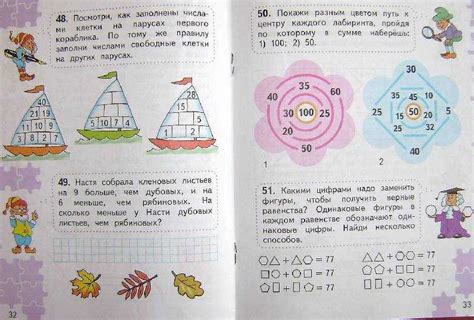 48. Посмотри, как заполнены числа-
ми клетки на парусах первого
кораблика. По тому же правилу
заполни числами свободные клетки
на других парусах.
40
21 19
15
5 10 9
5 1 9 7 2
28
15
5
2
49. Настя собрала кленовых листьев
на 9 больше, чем дубовых, и на
6 меньше, чем рябиновых. На
сколько меньше у Насти дубовых
листьев, чем рябиновых?
32
50. Покажи разным цветом путь к
центру каждого лабиринта, пройдя
по которому в сумме наберёшь:
1) 100; 2) 50.
35
40
35
60
30
100
25
45
50
1
30
40
35
45
20
15
50
5
5
10
25
2
51. Какими цифрами надо заменить
фигуры, чтобы получить верные
равенства? Одинаковые фигуры в
каждом равенстве обозначают оди-
наковые цифры. Найди несколько
способов.
○△ + △○ = 77 △△ + ○○ = 77
□○ + □○ = 77 □□ + □○ = 77
○□ + ○□ = 77 □□ + ○○ = 77
33